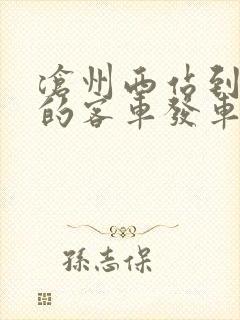 滄州西佔到
的客車發車
孫志保